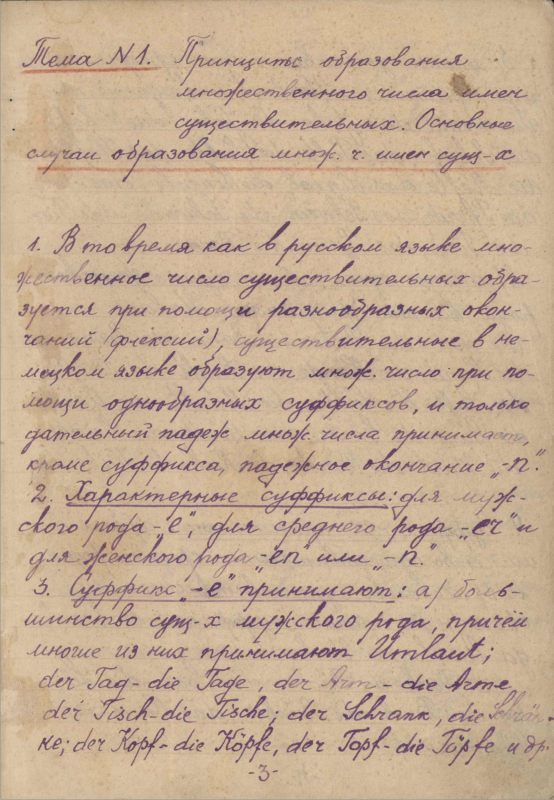 Тема N1. Принципы образования
множественного числа имен
существительных. Основные
случаи образования множ. ч. имен сущ-х
1. В то время как в русском языке мно-
жественное число существительных обра-
зуется при помощи разнообразных окон-
чаний (флексий), существительные в не-
мецком языке образуют множ. число при по-
мощи однообразных суффиксов, и только
дательный падеж множ. числа принимает,
кроме суффикса, падежное окончание „-n“.
2. Характерные суффиксы: для муж-
ского рода -„e“, для среднего рода -„er“ и
для женского рода -„en“ или „-n“.
3. Суффикс „-e“ принимают: а) боль-
шинство сущ-х мужского рода, причём
многие из них принимают Umlaut;
der Tag - die Tage, der Arm - die Arme
der Tisch - die Tische; der Schrank, die Schrän-
ke; der Kopf - die Köpfe, der Topf - die Töpfe и др.
-3-